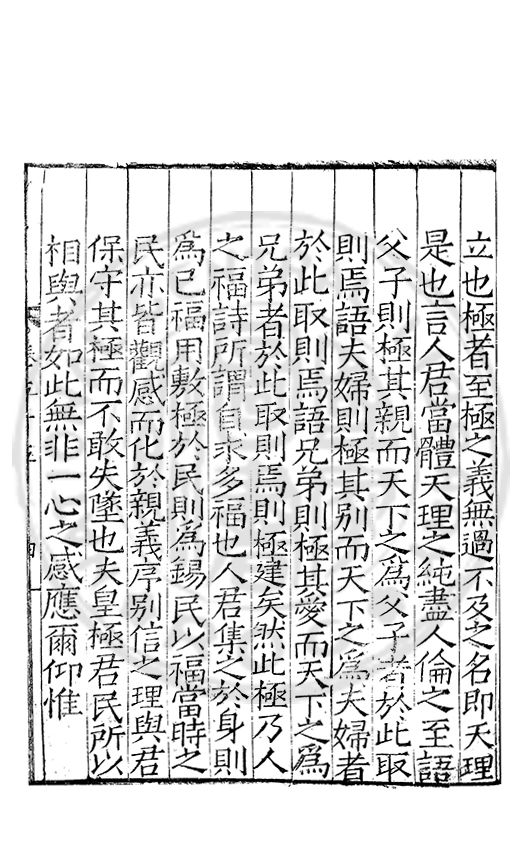 立也極者至極之義無過不及之名即天理
是也言人君當體天理之純盡人倫之至語
父子則極其親而天下之為父子者於此取
則焉語夫婦則極其别而天下之為夫婦者
於此取則焉語兄弟則極其愛而天下之為
兄弟者於此取則焉則極建矣然此極乃人
之福詩所謂自求多福也人君集之於身則
為已福用敷極於民則為錫民以福當時之
民亦皆觀感而化於親義序别信之理與君
保守其極而不敢失墜也夫皇極君民所以
相與者如此無非一心之感應爾仰惟